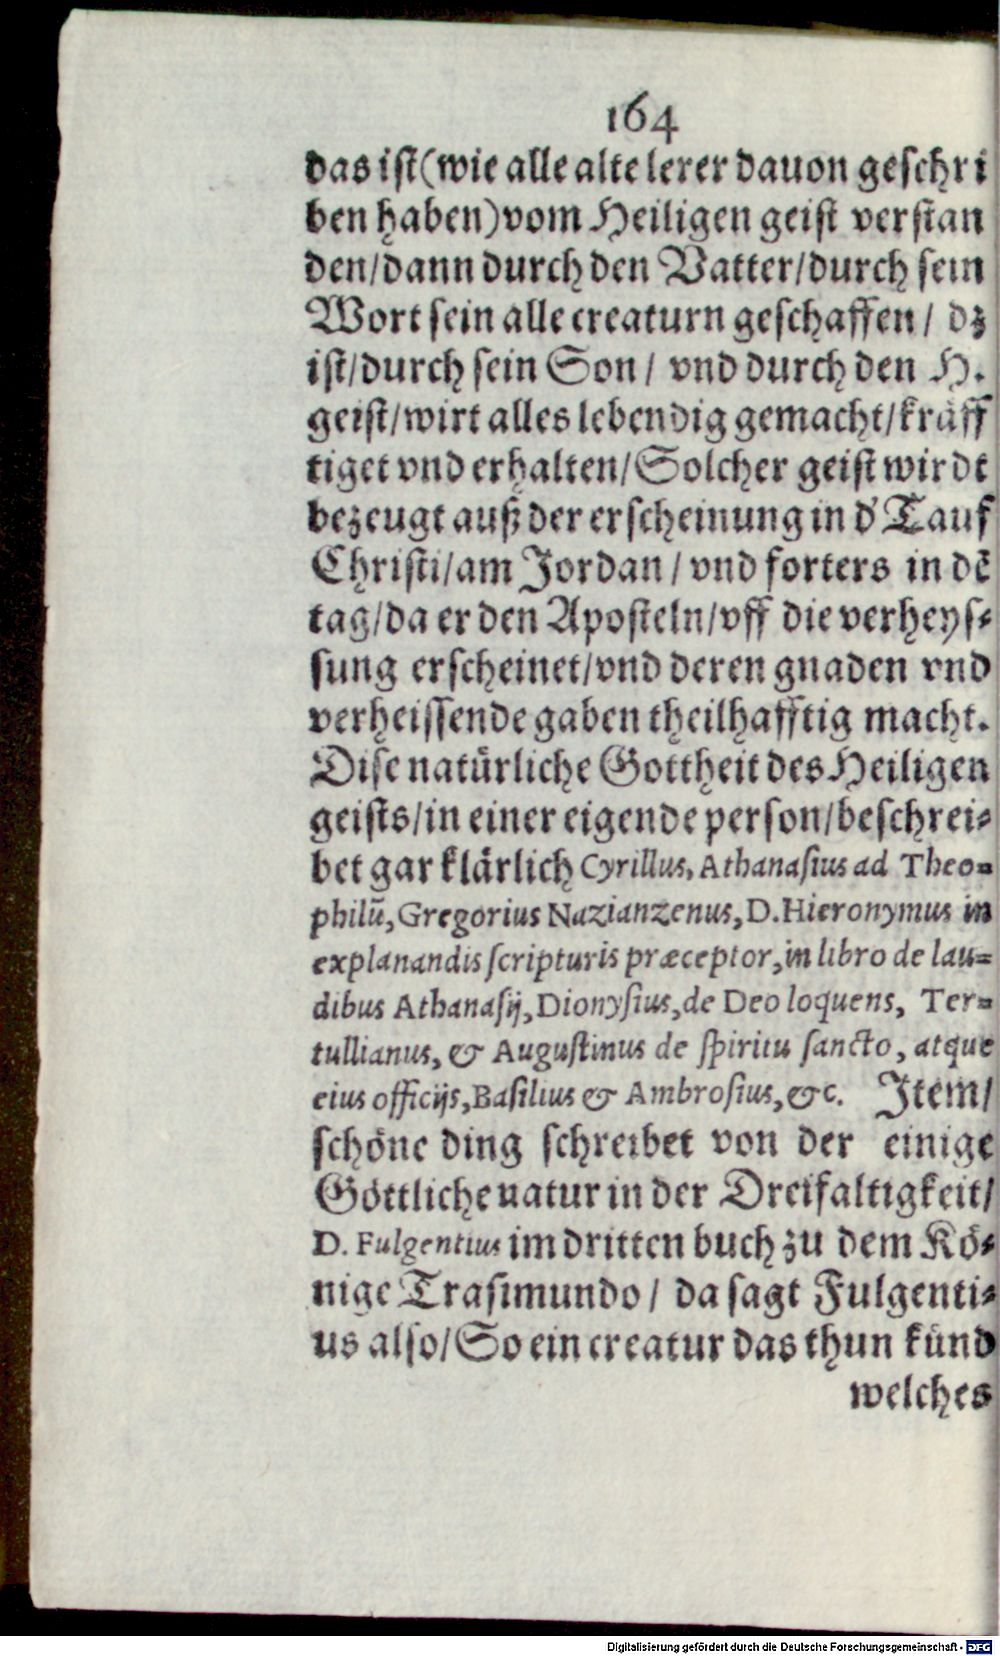 164
das ist (wie alle alte lerer dauon geschri
ben haben) vom Heiligen geist verstan
den / dann durch den Vatter / durch sein
Wort sein alle creaturn geschaffen / dz
ist / durch sein Son / vnd durch den H.
geist / wirt alles lebendig gemacht / kräff
tiget vnd erhalten / Solcher geist wirdt
bezeugt auß der erscheinung in d' Tauf
Christi / am Jordan / vnd forters in dē
tag / da er den Aposteln / vff die verheys-
sung erscheinet / vnd deren gnaden vnd
verheissende gaben theilhafftig macht.
Dise natürliche Gottheit des Heiligen
geists / in einer eigende person / beschrei-
bet gar klärlich Cyrillus, Athanasius ad Theo-
philū, Gregorius Nazianzenus, D. Hieronymus in
explanandis scripturis præceptor, in libro de lau-
dibus Athanasij, Dionysius, de Deo loquens, Ter-
tullianus, & Augustinus de spiritu sancto, atque
eius officijs, Basilius & Ambrosius, &c. Item /
schöne ding schreibet von der einige
Göttliche uatur in der Dreifaltigkeit /
D. Fulgentius im dritten buch zu dem Kö-
nige Trasimundo / da sagt Fulgenti-
us also / So ein creatur das thun künd
welches
Digitalisierung gefördert durch die Deutsche Forschungsgemeinschaft - DFG